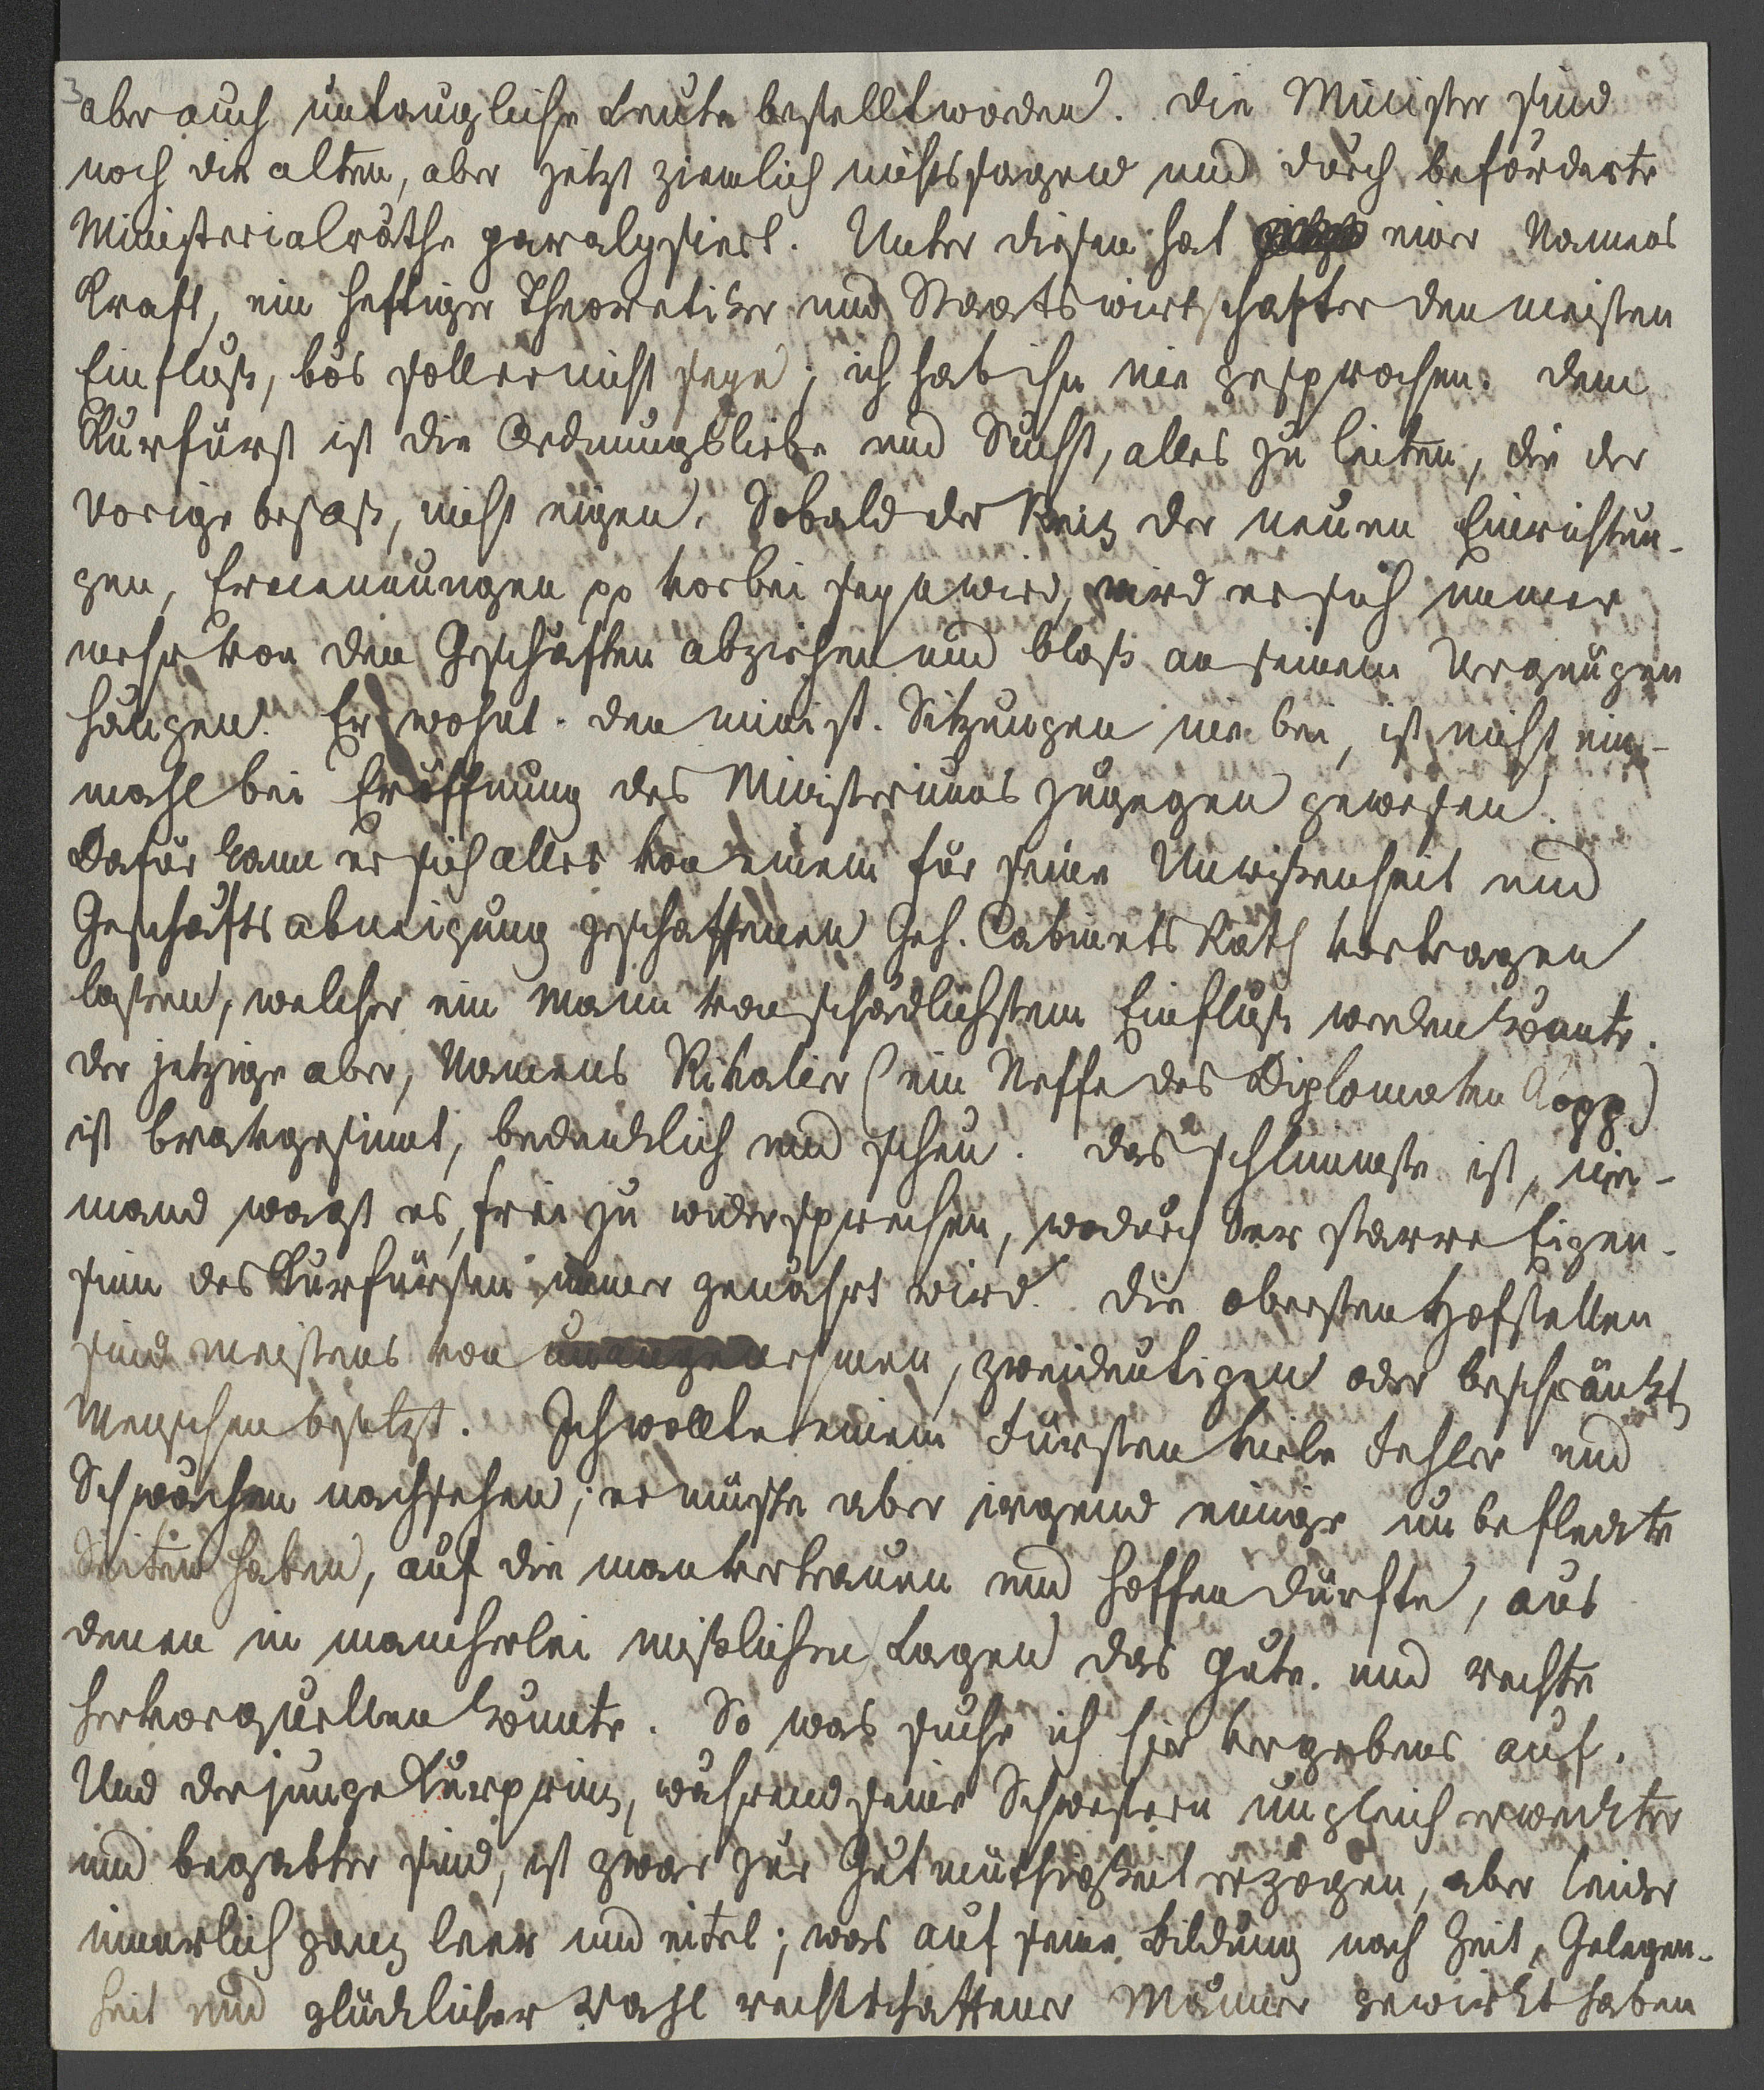 3
aber auch untaugliche Leute bestellt worden. Die Minister sind
noch die alten, aber jetzt ziemlich nichtssagend und durch beförderte
Ministerialräthe paralysiert. Unter diesen hat einer Namens
Kraft, ein heftiger Theoretiker und Staatswirtschafter den meisten
Einfluß, bös soll er nicht seyn; ich hab ihn nie gesprochen. Dem
Kurfürst ist die Ordnungsliebe und Sucht, alles zu leiten, die der
vorige besaß, nicht eigen. Sobald der Reiz der neuen Einrichtun-
gen, Ernennungen pp vorbei seyn wird, wird er sich immer
mehr von den Geschäften abziehen und bloß an seinem Vergnügen
hängen. Er wohnt den minist. Sitzungen nie bei, ist nicht ein-
mahl bei Eröffnung des Ministeriums zugegen gewesen.
Dafür kann er sich alles von einem für seine Unwißenheit und
Geschäftsabneigung geschaffenen Geh. Cabinets Rath vortragen
laßen, welcher ein Mann von schädlichstem Einfluß werden könnte.
der jetzige aber, Namens Rivalier (ein Neffe des Diplomaten Kopp)
ist bravgesinnt, bedenklich und scheu. Das schlimmste ist, nie-
mand wagt es, frei zu widersprechen, wodurch der starre Eigen-
sinn des Kurfürsten immer genährt wird. Die obersten Hofstellen
sind meistens von unangenehmen, zweideutigen oder beschränkten
Menschen besetzt. Ich wollte einem Fürsten viele Fehler und
Schwächen nachsehen; er müste aber irgend einige unbefleckte
Seiten haben, auf die man vertrauen und hoffen dürfte, aus
denen in mancherlei mißlichen Lagen das gute und rechte
hervorquellen könnte. So was suche ich hier vergebens auf.
Und der junge Kurprinz, während seine Schwestern ungleich erweckter
und begabter sind, ist zwar zur Gutmüthigkeit erzogen, aber leider
innerlich ganz leer und eitel; was auf seine Bildung nach Zeit, Gelegen-
heit und glücklicher Wahl rechtschaffener Männer gewirkt haben